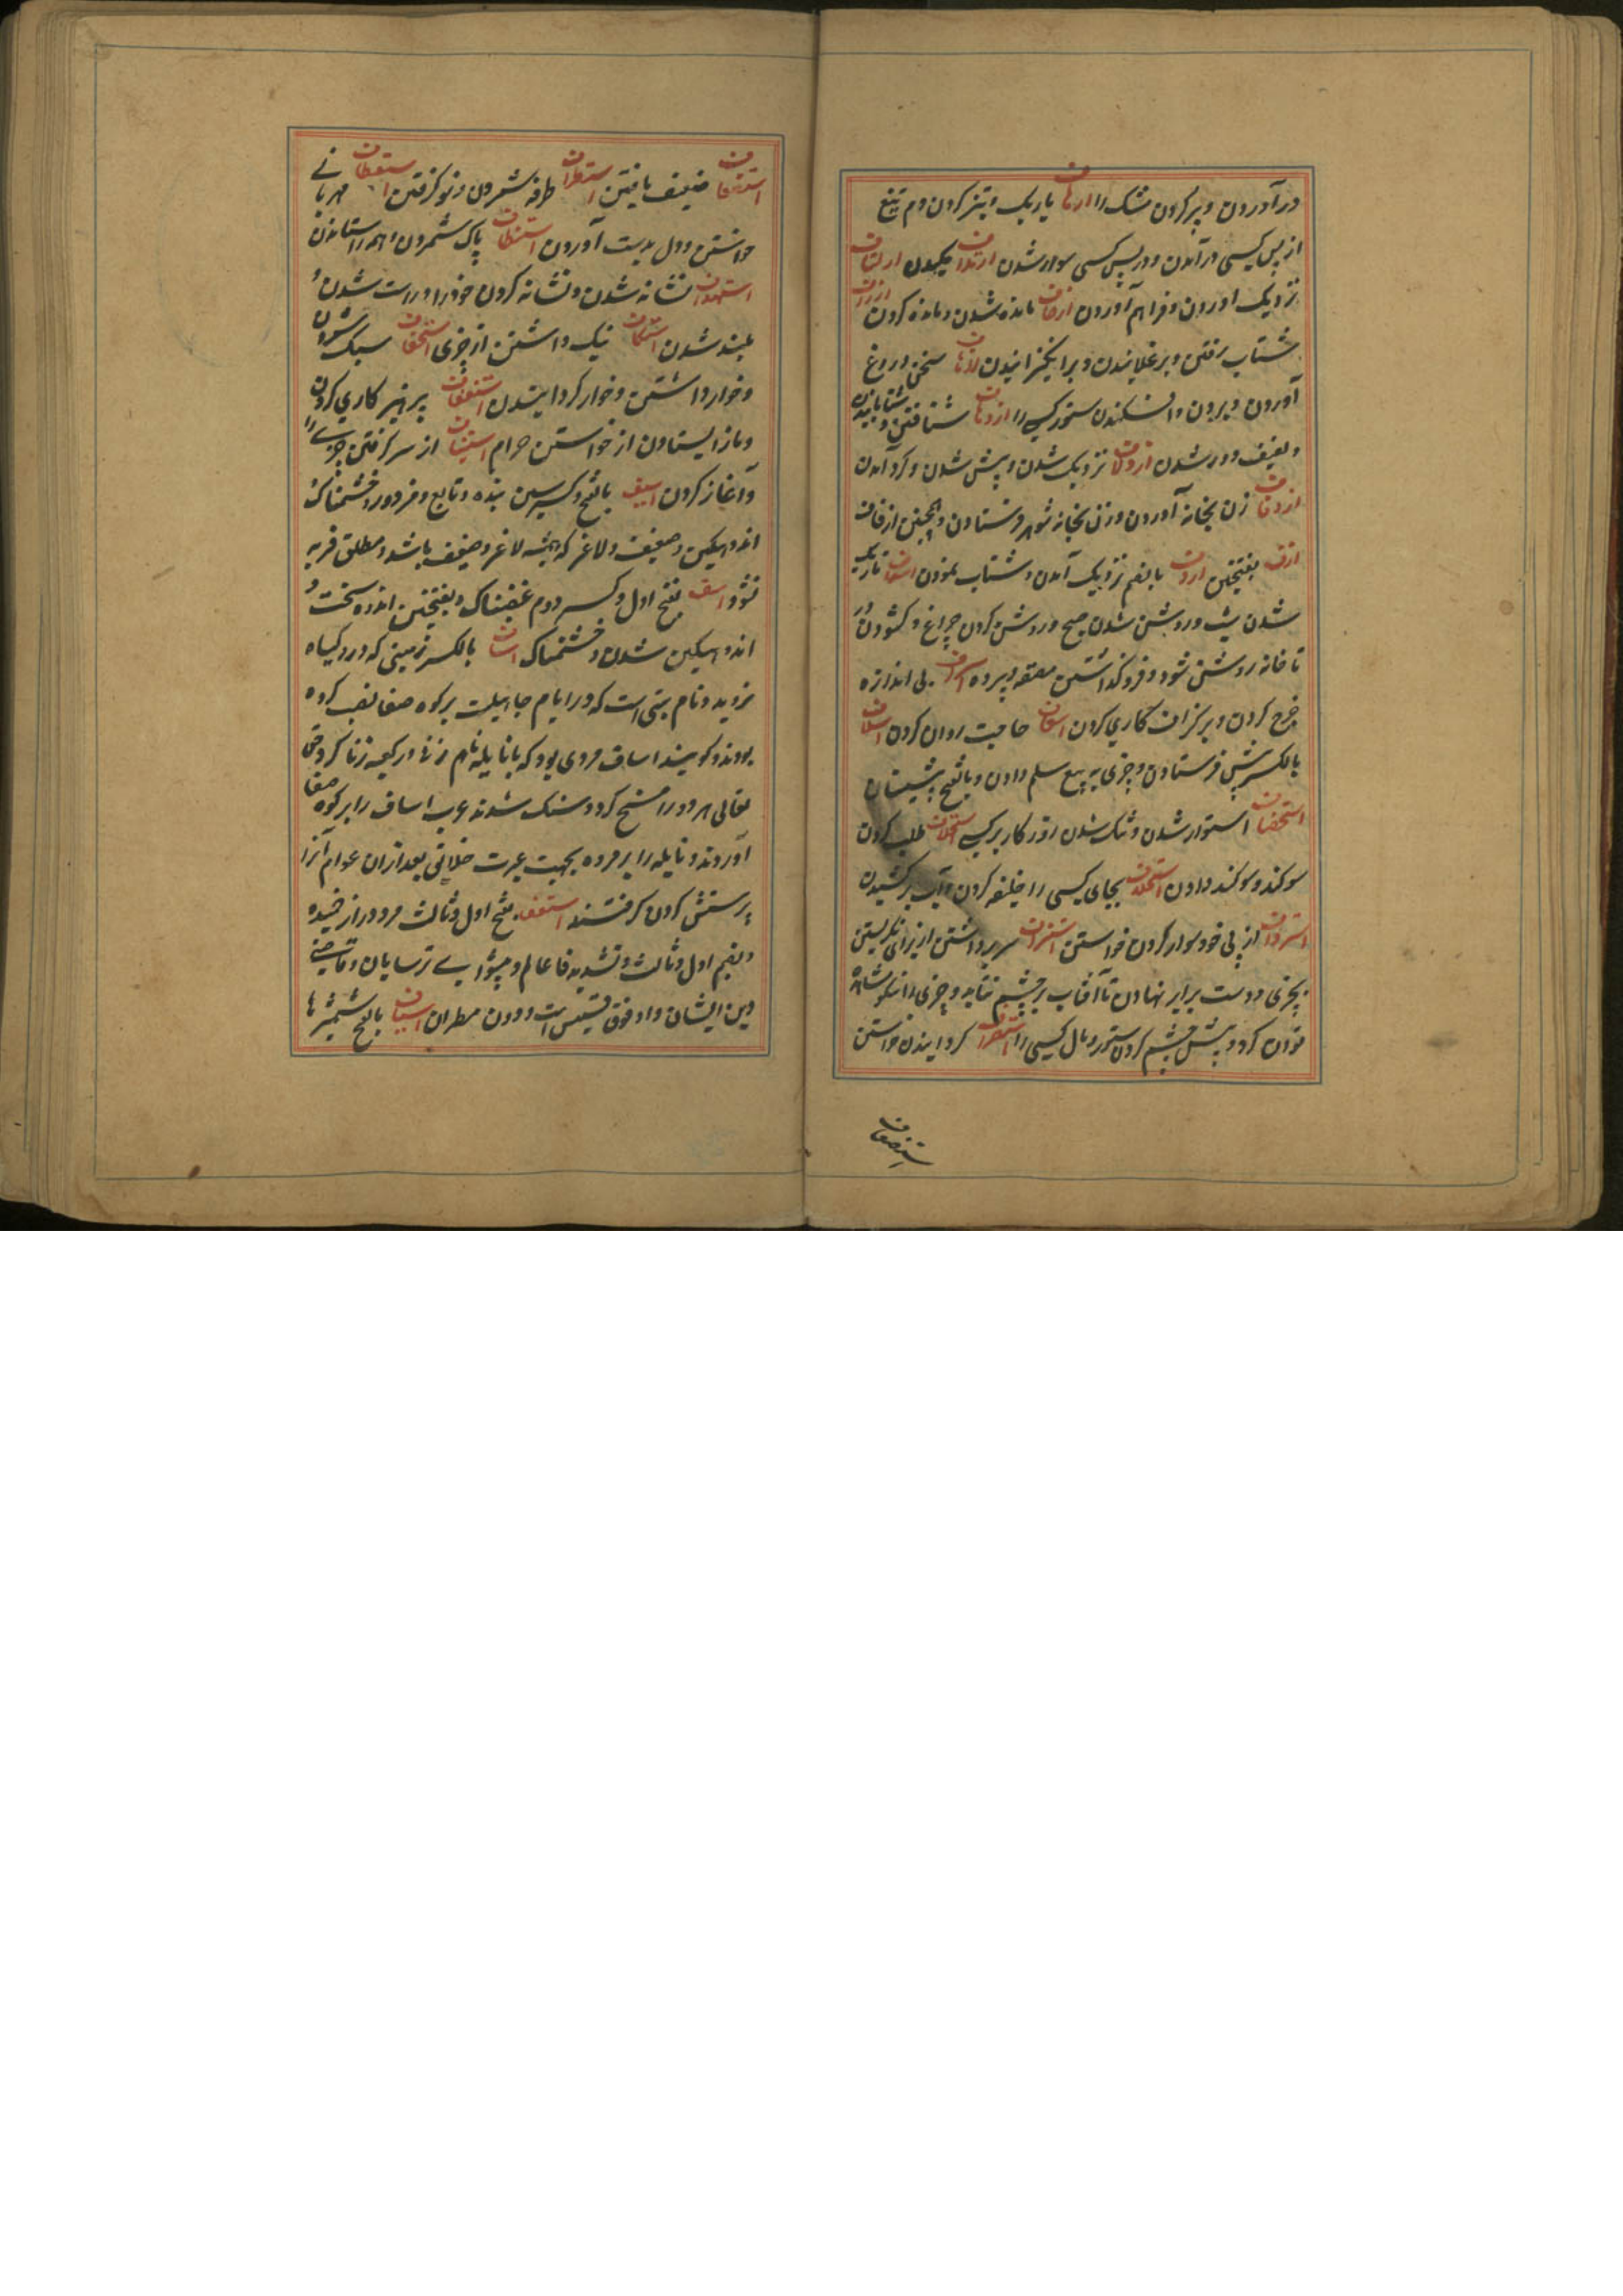 در آوردن و پر کردن مشک را ارهاف باریک و تیز کردن دم تیغ
از پس کسی در آمدن و در پس کسی سوار شدن ارتداف مکیدن ارتشاف
نزدیک آوردن و فراهم آوردن ازحاف مانده شدن و مانده کردن ازراف
شتاب رفتن و برغلانیدن و برانگیزانیدن ازهاف سخن دروغ
آوردن و بردن و افکندن ستور کسی را ازدهاف شتافتن و شتابانیدن
و تعنیف و دور شدن ازدلاف نزدیک شدن و پیش شدن و گرد آمدن
ازدفاف زن بخانه آوردن و زن بخانه شوهر فرستادن و همچنین ازفاف
ازف بفتحتین ازوف بالضم نزدیک آمدن و شتاب نمودن اسداف تاریک
شدن شب و روشن شدن صبح و روشن کردن چراغ و کشودن در
تا خانه روشن شود و فرو گذاشتن مقنعه و پرده اسراف بی اندازه
خرج کردن و بر گزاف کاری کردن اسعاف حاجت روان کردن اسلاف
بالکسر پیش فرستادن و چیزی به بیع سلم دادن و بالفتح پیشینان
استحصاف استوار شدن و تنگ شدن روزگار بر کسی استحلاف طلب کردن
سوکند و سوکند دادن استخلاف بجای کسی را خلیفه کردن و آب بر کشیدن
استرداف از پی خود سوار کردن خواستن استشراف سر برداشتن از برای نگریستن
بچیزی و دست برابر نهادن تا آفتاب بر چشم نتابد و چیزی را نیکو مشاهده
توان کرد و پیش چشم کردن ستور و مال کسی را استصراف گردانیدن خواستن
ستضعاف
استضعاف ضعیف یافتن استطراف طرفه شمردن و نو گرفتن استعطاف مهربانی
خواستن و دل بدست آوردن استنظاف پاک شمردن و همه را ستاندن
استهداف نشانه شدن و نشانه کردن خود را و راست شدن و
بلند شدن استنکاف ننگ داشتن از چیزی استخفاف سبک شمردن
و خوار داشتن و خوار گردانیدن استعفاف پرهیز کاری کردن
و باز ایستادن از خواستن حرام استیناف از سر گرفتن چیزی را
و آغاز کردن اسیف بالفتح و کسر سین بنده و تابع و مزدور و خشمناک و
اندوهکین و ضعیف و لاغر که همیشه لاغر و ضعیف باشد و مطلق فربه
نشود اسف بفتح اول و کسر دوم غضبناک و بفتحتین اندوه سخت و
اندوهکین شدن و خشمناک اساف بالکسر زمینی که درو گیاه
نروید و نام بتی است که در ایام جاهلیت بر کوه صفا نصب کرده
بودند و گویند اساف مردی بود که با نایله نام زنی در کعبه زنا کرد حق
تعالی هر دو را مسخ کرد و سنگ شدند عرب اساف را بر کوه صفا
آوردند و نایله را بر مروه بجهت عبرت خلایق بعد ازان عوام آنرا
پرستش کردن گرفتند اسقف بفتح اول و ثالث مرد دراز خمیده
و بضم اول و ثالث و تشدید فا عالم و پیشوای ترسایان و قاضی
دین ایشان و او فوق قسیس است و دون مطران اسیاف بالفتح شمشیرها